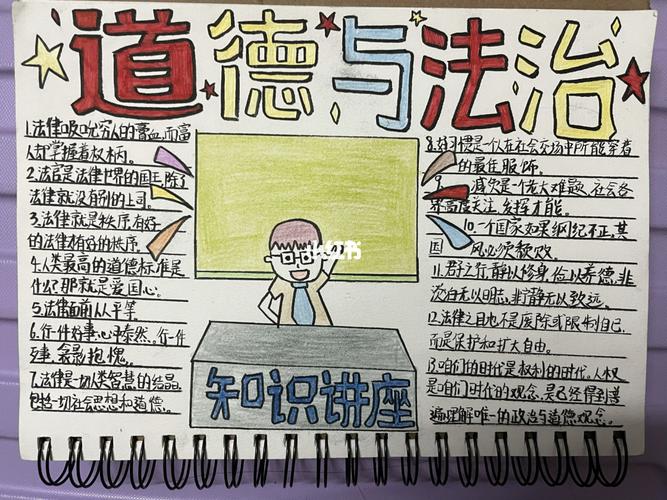 道德与法治
1.法律吸吮穷人的膏血,而富
人却掌握着权柄。
2.法官是法律世界的国王,除了
法律就没有别的上司。
3.法律就是秩序,有好
的法律才有好的秩序。
4.人类最高的道德标准是
什么?那就是爱国心。
5.法律面前人人平等
6.行一件好事,心中泰然,行一件
歹事,衾影抱愧。
7.法律是一切人类智慧的结晶
包括一切社会思想和道德。
小红书
知识讲座
8.好习惯是一个人在社会交场中所能穿着
的最佳服饰。
9.减灾是个老大难题,社会各
界高度关注,发挥才能。
10.一个国家如果纲纪不正,其
国风必须颓败。
11.君子之行,静以修身,俭以养德,非
淡泊无以明志,非宁静无以致远。
12.法律之目也不是废除或限制自己,
而是保护和扩大自由。
13.咱们的时代是权利的时代。人权
是咱们时代的观念,是已经得到普
遍理解唯一的政治与道德观念。